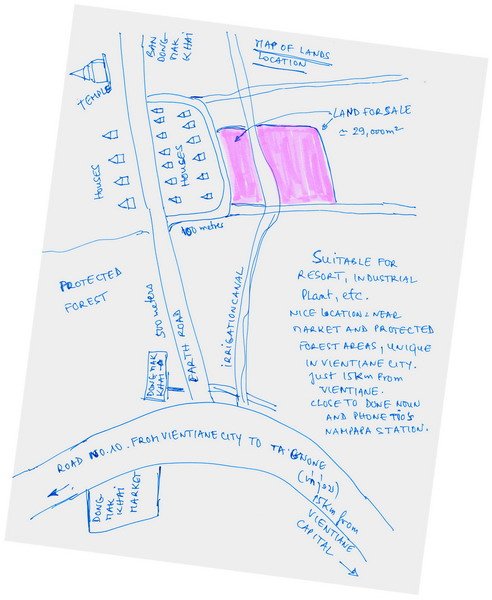 MAP OF LANDS
LOCATION
BAN
DONG-
MAK
KHAI
TEMPLE
HOUSES
HOUSES
LAND FOR SALE
≃ 29,000m²
100 metres
PROTECTED
FOREST
500 meters
EARTH ROAD
IRRIGATION CANAL
DONGMAK
KHAI
SUITABLE FOR
RESORT, INDUSTRIAL
Plant, etc.
NICE LOCATION: NEAR
MARKET AND PROTECTED
FOREST AREAS, UNIQUE
IN VIENTIANE CITY.
Just 15km From
VIENTIANE.
CLOSE TO DONE NOUN
AND PHONE TÔO'S
NAMPAPA STATION.
ROAD NO.10. FROM VIENTIANE CITY TO TA'GNONE
DONG
MAK
KHAI
MARKET
15km from
VIENTIANE
CAPITAL